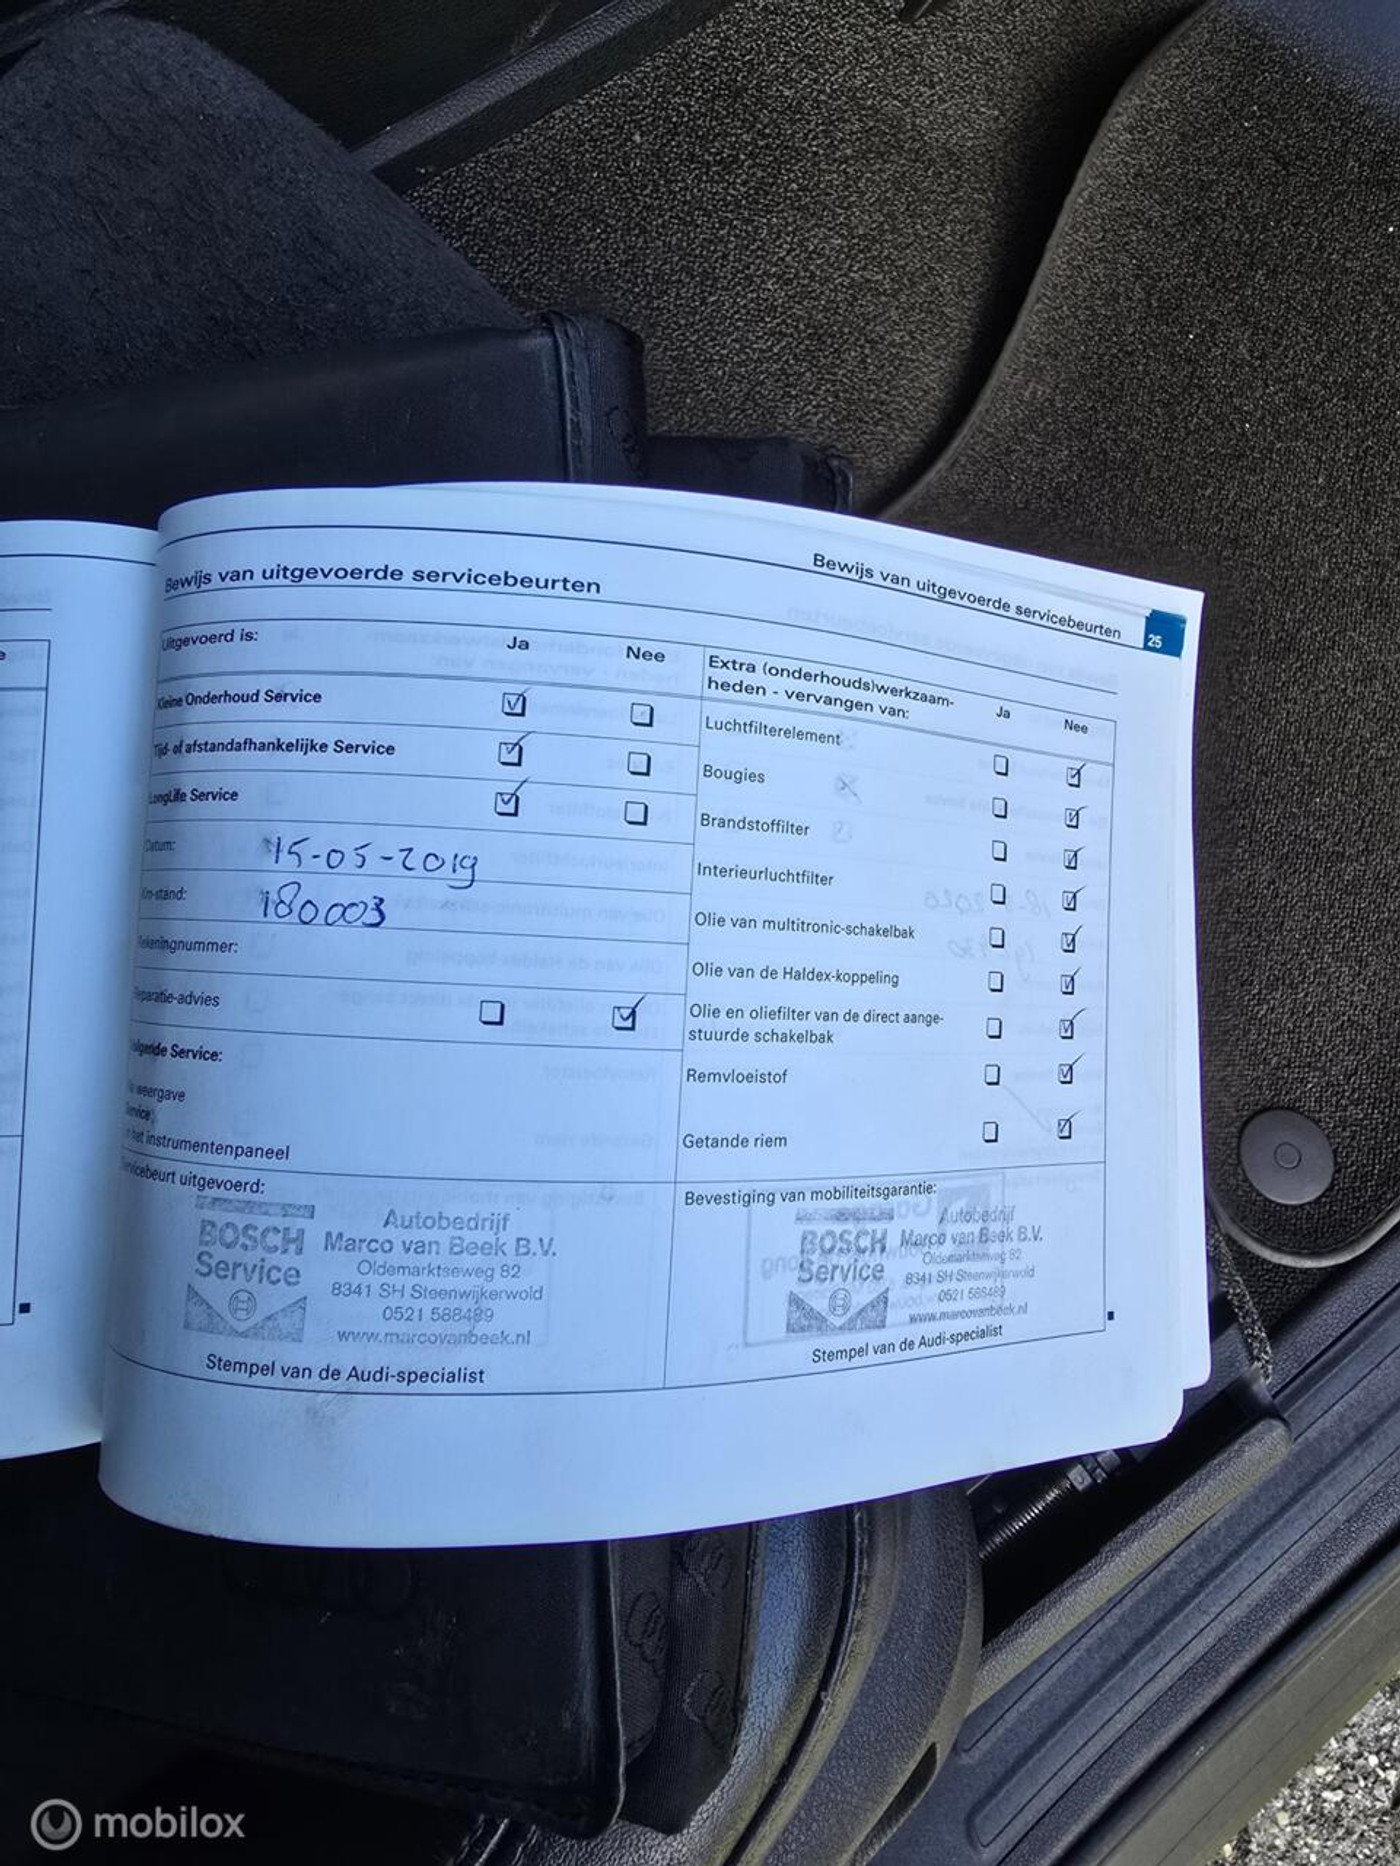 Bewijs van uitgevoerde servicebeurten
25
Bewijs van uitgevoerde servicebeurten
Uitgevoerd is:
Ja
Nee
Kleine Onderhoud Service
Tijd- of afstandafhankelijke Service
LongLife Service
Datum:
15-05-2019
Km-stand:
180003
Rekeningnummer:
Reparatie-advies
Volgende Service:
weergave
Service
het instrumentenpaneel
Servicebeurt uitgevoerd:
BOSCH
Service
Autobedrijf
Marco van Beek B.V.
Oldemarktseweg 82
8341 SH Steenwijkerwold
0521 588489
www.marcovanbeek.nl
Stempel van de Audi-specialist
Extra (onderhouds)werkzaam-
heden - vervangen van:
Ja
Nee
Luchtfilterelement
Bougies
Brandstoffilter
Interieurluchtfilter
Olie van multitronic-schakelbak
Olie van de Haldex-koppeling
Olie en oliefilter van de direct aange-
stuurde schakelbak
Remvloeistof
Getande riem
Bevestiging van mobiliteitsgarantie:
BOSCH
Service
Autobedrijf
Marco van Beek B.V.
Oldemarktseweg 82
8341 SH Steenwijkerwold
0521 588489
www.marcovanbeek.nl
Stempel van de Audi-specialist
mobilox